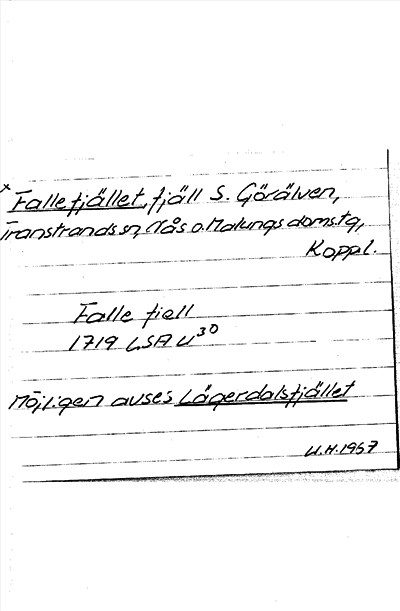 x Fallefjället, fjäll S. Görälven,
Transtrands sn, Nås o. Malungs doms.tg,
Koppl.
Falle fiell
1719 LSA U30
Möjligen avses Lågerdalsfjället
U.H. 1967